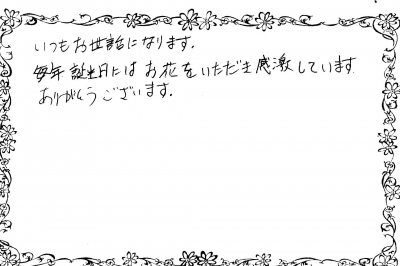 いつもお世話になります.
毎年誕生日にはお花をいただき感激しています
ありがとうございます.